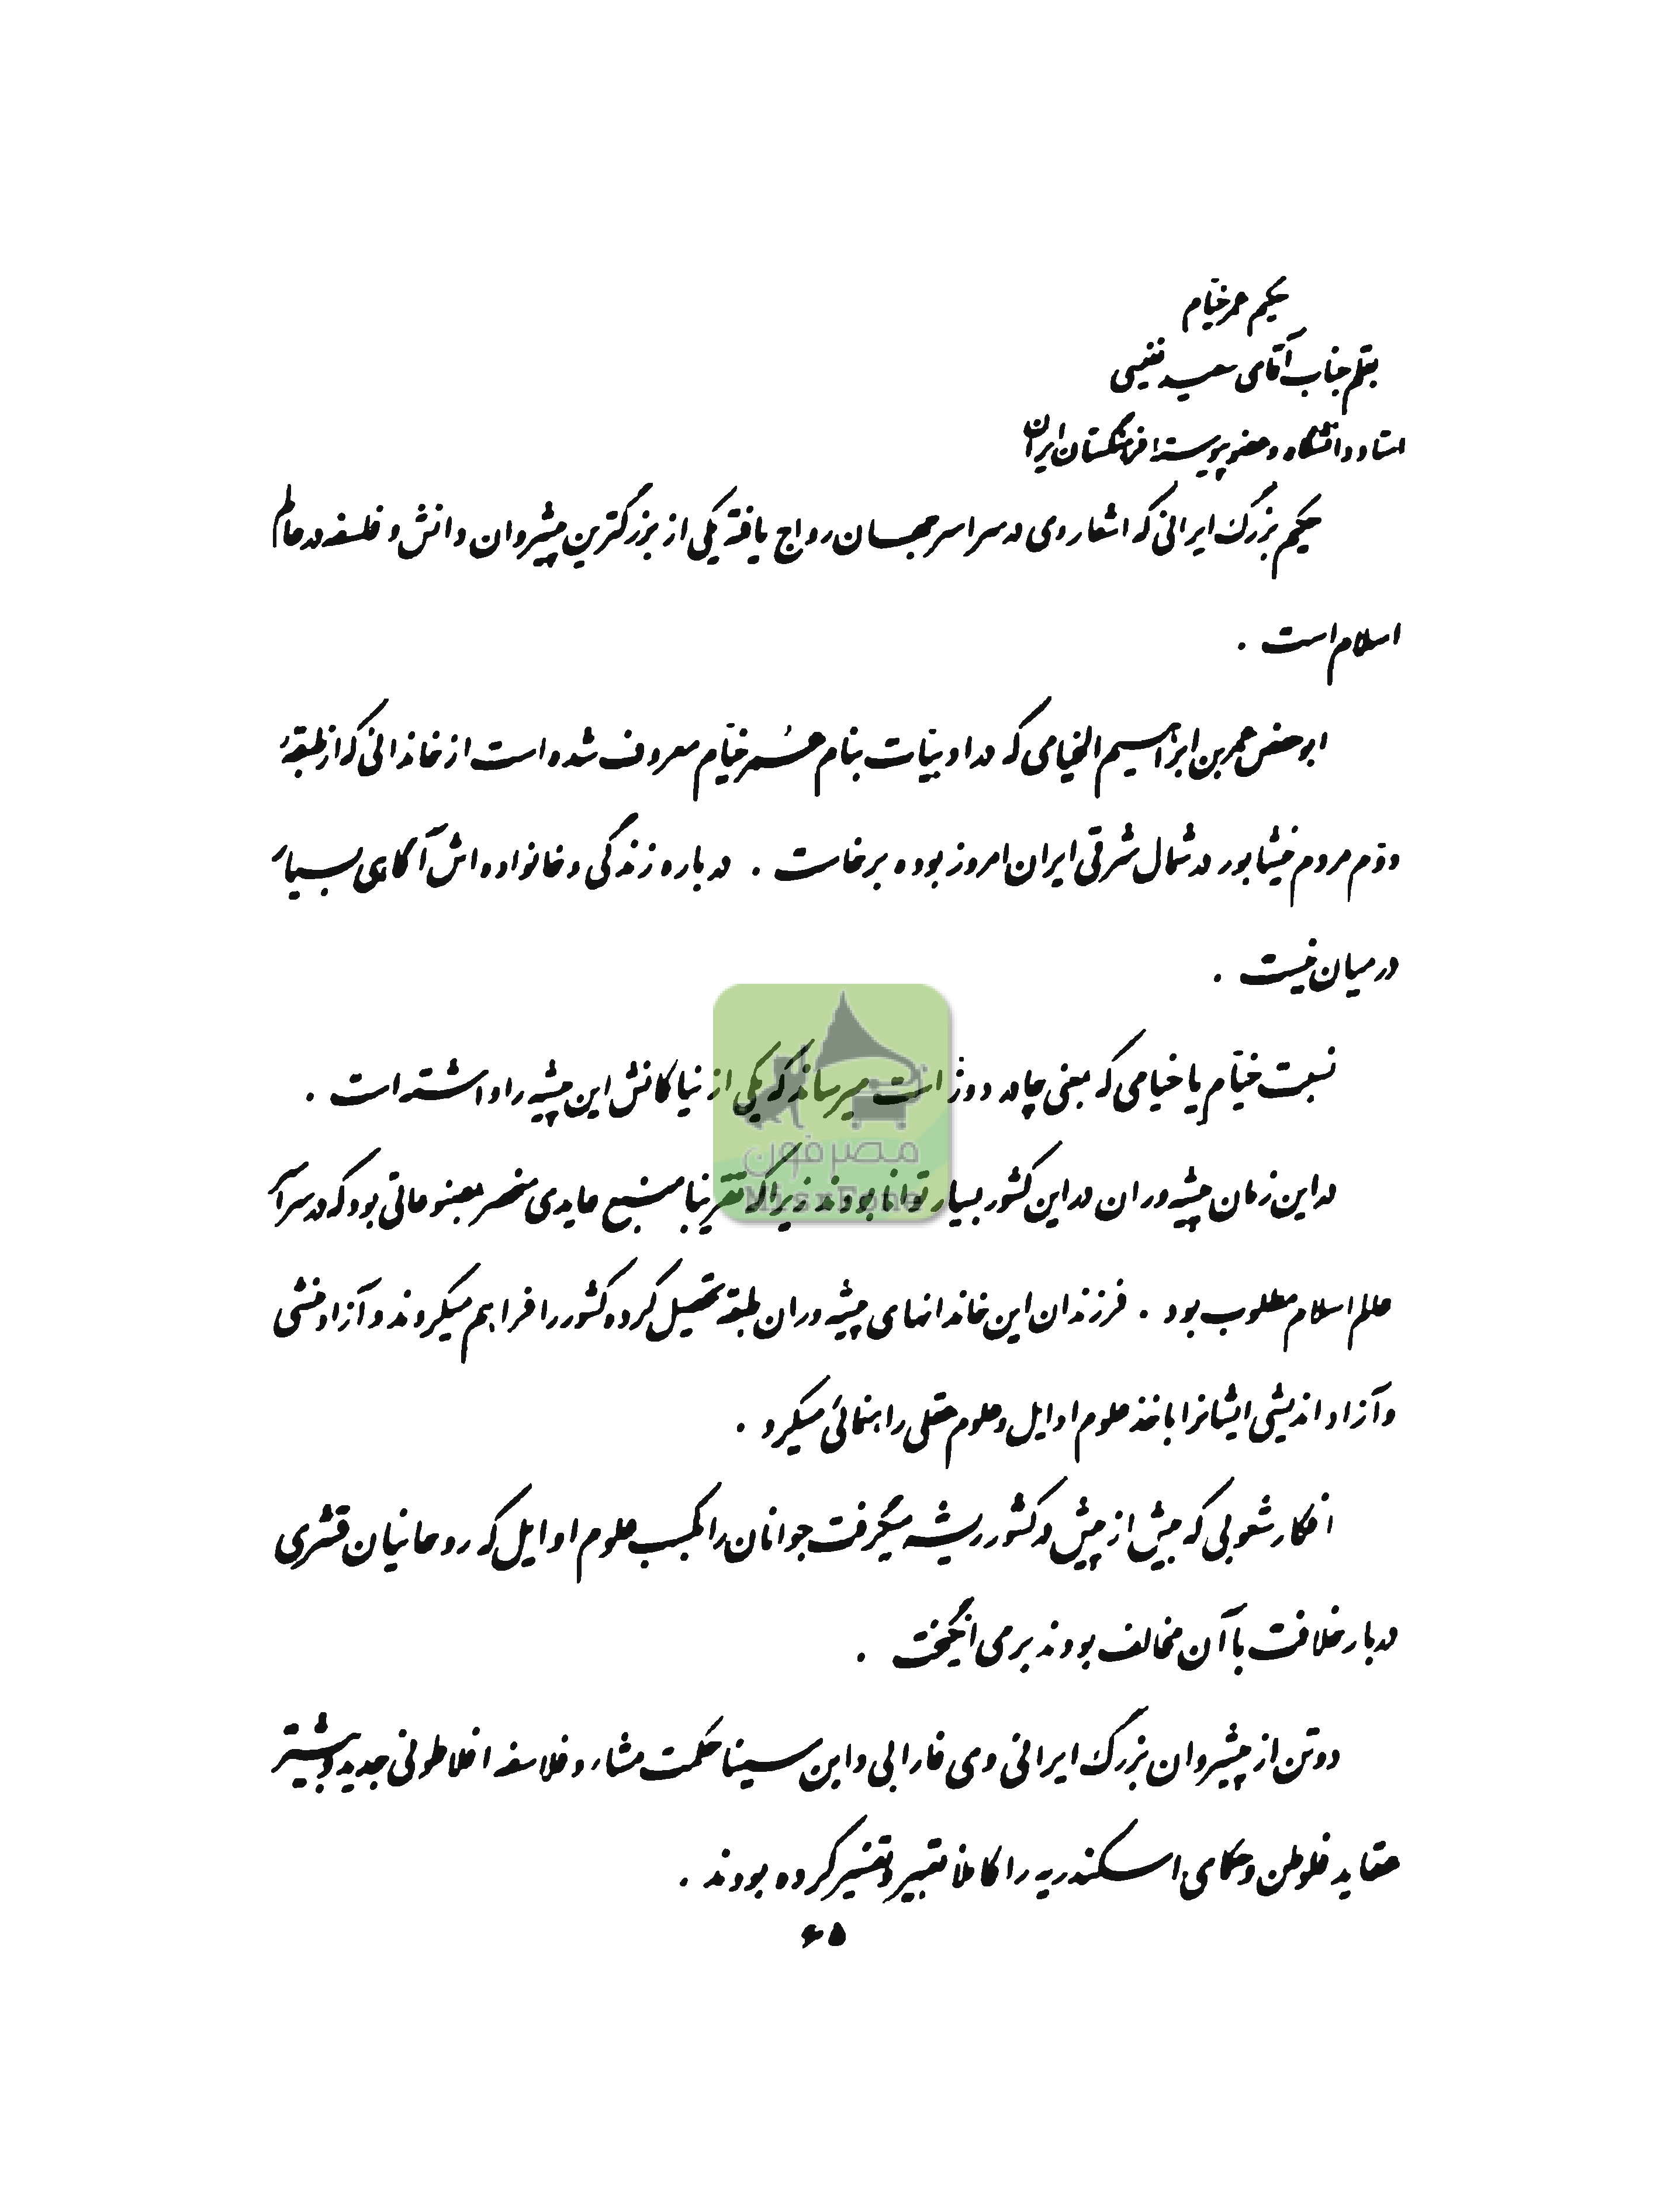 حکیم عمر خیّام
بقلم جناب آقای سعید نفیسی
استاد دانشگاه و عضو پیوستهٔ فرهنگستان ایران
حکیم بزرگ ایرانی که اشعار وی در سراسر جهان رواج یافته یکی از بزرگترین پیشروان دانش و فلسفه در عالم
اسلام است .
ابوحفص عمر بن ابراهیم الخیامی که در ادبیّات بنام عُمر خیّام معروف شده است از خاندانی که از طبقهٔ
دوّم مردم نیشابور در شمال شرقی ایران امروز بوده برخاست . درباره زندگی و خانواده اش آگاهی بسیار
در میان نیست .
نسبت خیّام یا خیامی که بمعنی چادر دوز است میرساند که یکی از نیاکانش این پیشه را داشته است .
در این زمان پیشه وران در این کشور بسیار توانا بودند زیرا که تقریبا منبع عایدی منحصر بمصنوعاتی بود که در سرآسر
عالم اسلام مطلوب بود . فرزندان این خاندانهای پیشه وران طبقه تحصیل کرده کشور را فراهم میکردند و آزاد منشی
و آزاد اندیشی ایشانرا باخذ علوم اوایل و علوم عقلی راهنمائی میکرد .
افکار شعوبی که بیش از پیش در کشور ریشه میگرفت جوانان را بکسب علوم اوایل که روحانیان قشری
دربار خلافت با آن مخالف بودند برمی انگیخت .
دو تن از پیشروان بزرگ ایرانی وی فارابی و ابن سینا حکمت مشاء و فلاسفه افلاطونی جدید و بیشتر
عقاید فلوطن و حکمای اسکندریه را کاملا تعبیر و تفسیر کرده بودند .
۶۵
مصرفون
MisrFone